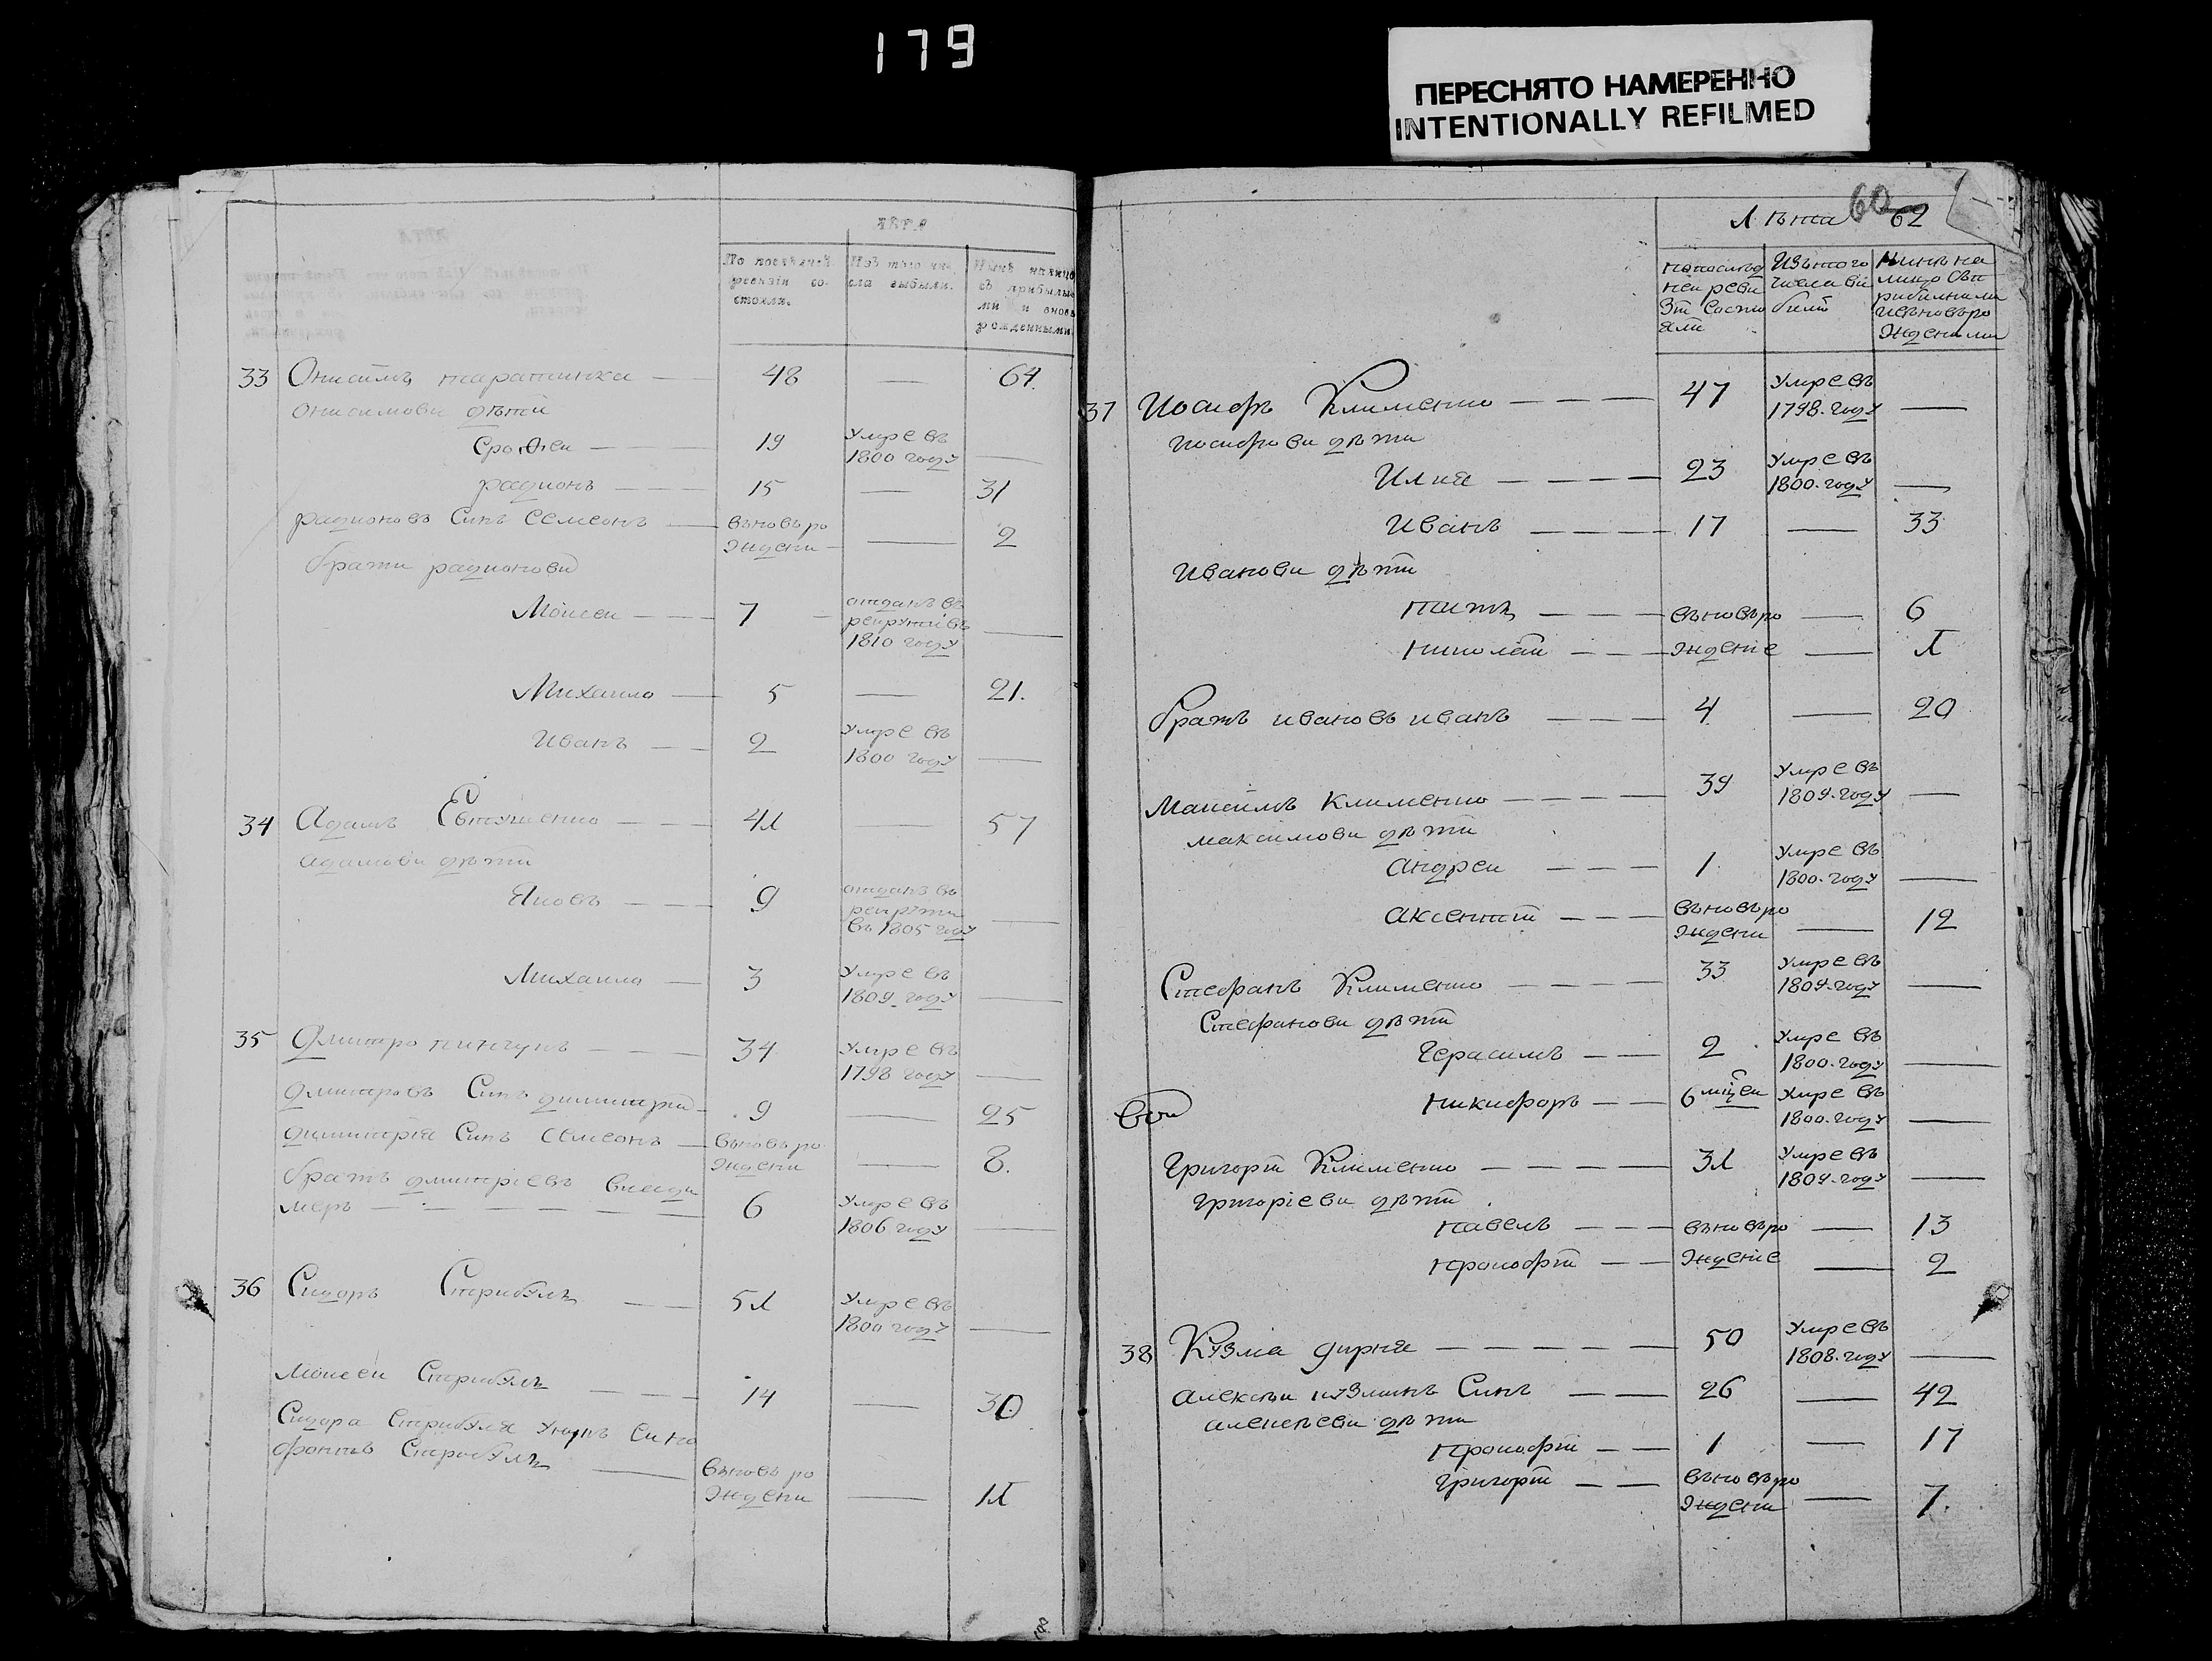 179
ПЕРЕСНЯТО НАМЕРЕННО
INTENTIONALLY REFILMED
ЛѢТА
По послѣдней ревизіи состояли.
Изъ того числа выбыли.
Нынѣ на лицо съ прибылыми и вновь рожденными.
33 Онисимъ тарапинка — 48 — 64.
Онисимови дѣти
19 Умре въ 1800 году —
радионъ — 15 — 31
радионовъ Синъ Семеонъ — въновъро ждени — — 2
брати радионови
Моисеи — 7 — отданъ въ рекрути въ 1810 году —
Михаило — 5 — 21.
Иванъ — 2 Умре въ 1800 году —
34 Адамъ Евтушенко — 41 — 57
адамови дѣти
Яковъ — 9 отданъ въ рекрути въ 1805 году —
Михаило — 3 Умре въ 1809 году —
35 Дмитро — 34 Умре въ 1798 году —
дмитровъ Синъ димитрій — 9 — 25
димитрія Синъ Семеонъ — въновъ ро ждени — 8.
братъ дмитріевъ влади
меръ — 6 Умре въ 1806 году —
36 Сидоръ Стрибуль — 51 Умре въ 1800 году —
Моисеи Стрибуль — 14 — 30
Сидора Стрибуля унукъ
Стрибуль — въновъ ро ждени — 11
60 62
Лѣта
попослѣд неи реви зіи состо яли
Изътого числа ви било
Нинѣ на лицо съп рибилними ивъновъро ждеными
37 Иосифъ Клименко — 47 Умре въ 1798. году —
Иосифови дѣти
Илия — 23 Умре въ 1800. году —
Иванъ — 17 — 33
Иванови дѣти
въновъро — 6
николай — ждение — 1
братъ ивановъ иванъ — 4 — 20
Максимъ Клименко — 39 Умре въ 1809. году —
максимови дѣти
андреи — 1. Умре въ 1800. году —
аксентій — въновъро ждени — 12
Стефанъ Клименко — 33 Умре въ 1809. году —
Стефанови дѣти
Герасимъ — 2 Умре въ 1800. году —
никифоръ — 6 мцеи Умре въ 1800. году —
Григорій Клименко — 31 Умре въ 1809. году —
Григоріеви дѣти
павелъ — въновъро — 13
прокофій — ждение — 2
38 Кузма дирня — 50 Умре въ 1808. году —
алексѣи кузминъ Синъ — 26 — 42
алексѣеви дѣти
прокофій — 1 — 17
Григорій — въновъро ждени — 7.